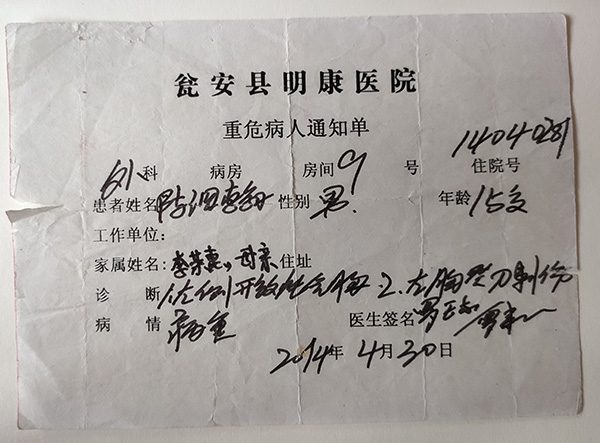 瓮安县明康医院
重危病人通知单
外科 病房 房间 9 号 14040281 住院号
患者姓名 陈泗翰 性别 男. 年龄 15岁
工作单位:
家属姓名: 李荣惠,母亲 住址
诊 断 1.左侧开放性气胸 2.左胸壁刀刺伤
病 情 病重 医生签名
2014年 4月 30日